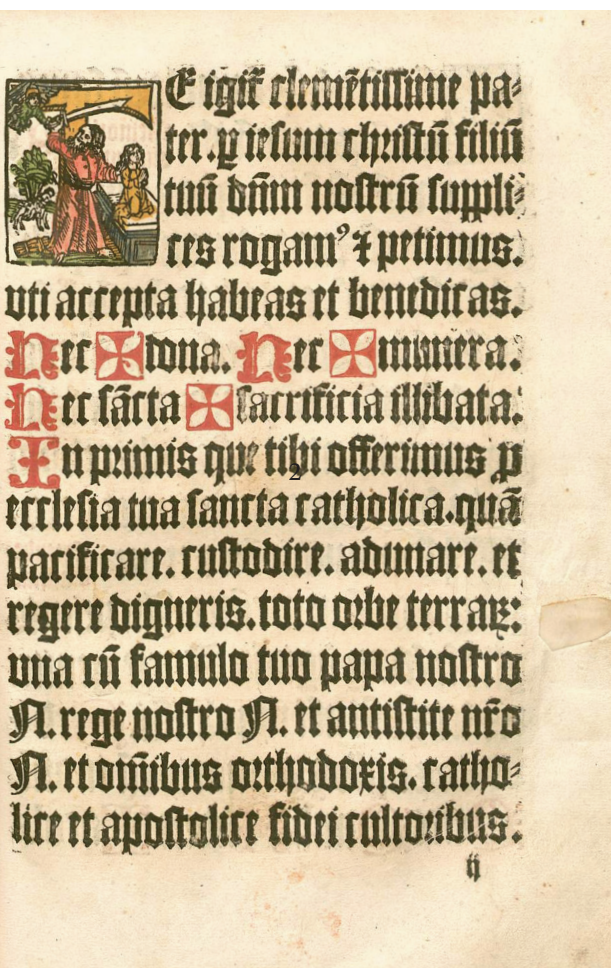 TE igit᷑ clemētissime pa⸗
ter. ꝑ iesum christū filiū
tuū dn̄m nostrū suppli⸗
ces rogamꝰ ⁊ petimus.
vti accepta habeas et benedicas.
Hec ✠ dona. Hec ✠ munera.
Hec sācta ✠ sacrificia illibata.
In primis que tibi offerimus ꝓ
2
ecclesia tua sancta catholica. quā
pacificare. custodire. adunare. et
regere digneris. toto orbe terraꝝ:
vna cū famulo tuo papa nostro
N. rege nostro N. et antistite nr̄o
N. et om̄ibus orthodoxis. catho⸗
lice et apostolice fidei cultoribus.
ij